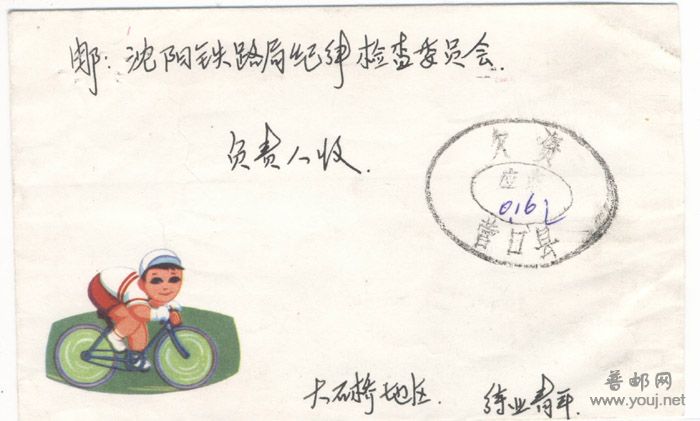 邮：沈阳铁路局纪律检查委员会.
负责人收.
欠资
应
0.16
营口县
大石桥地区. 待业青年.
普邮网
www.youj.net